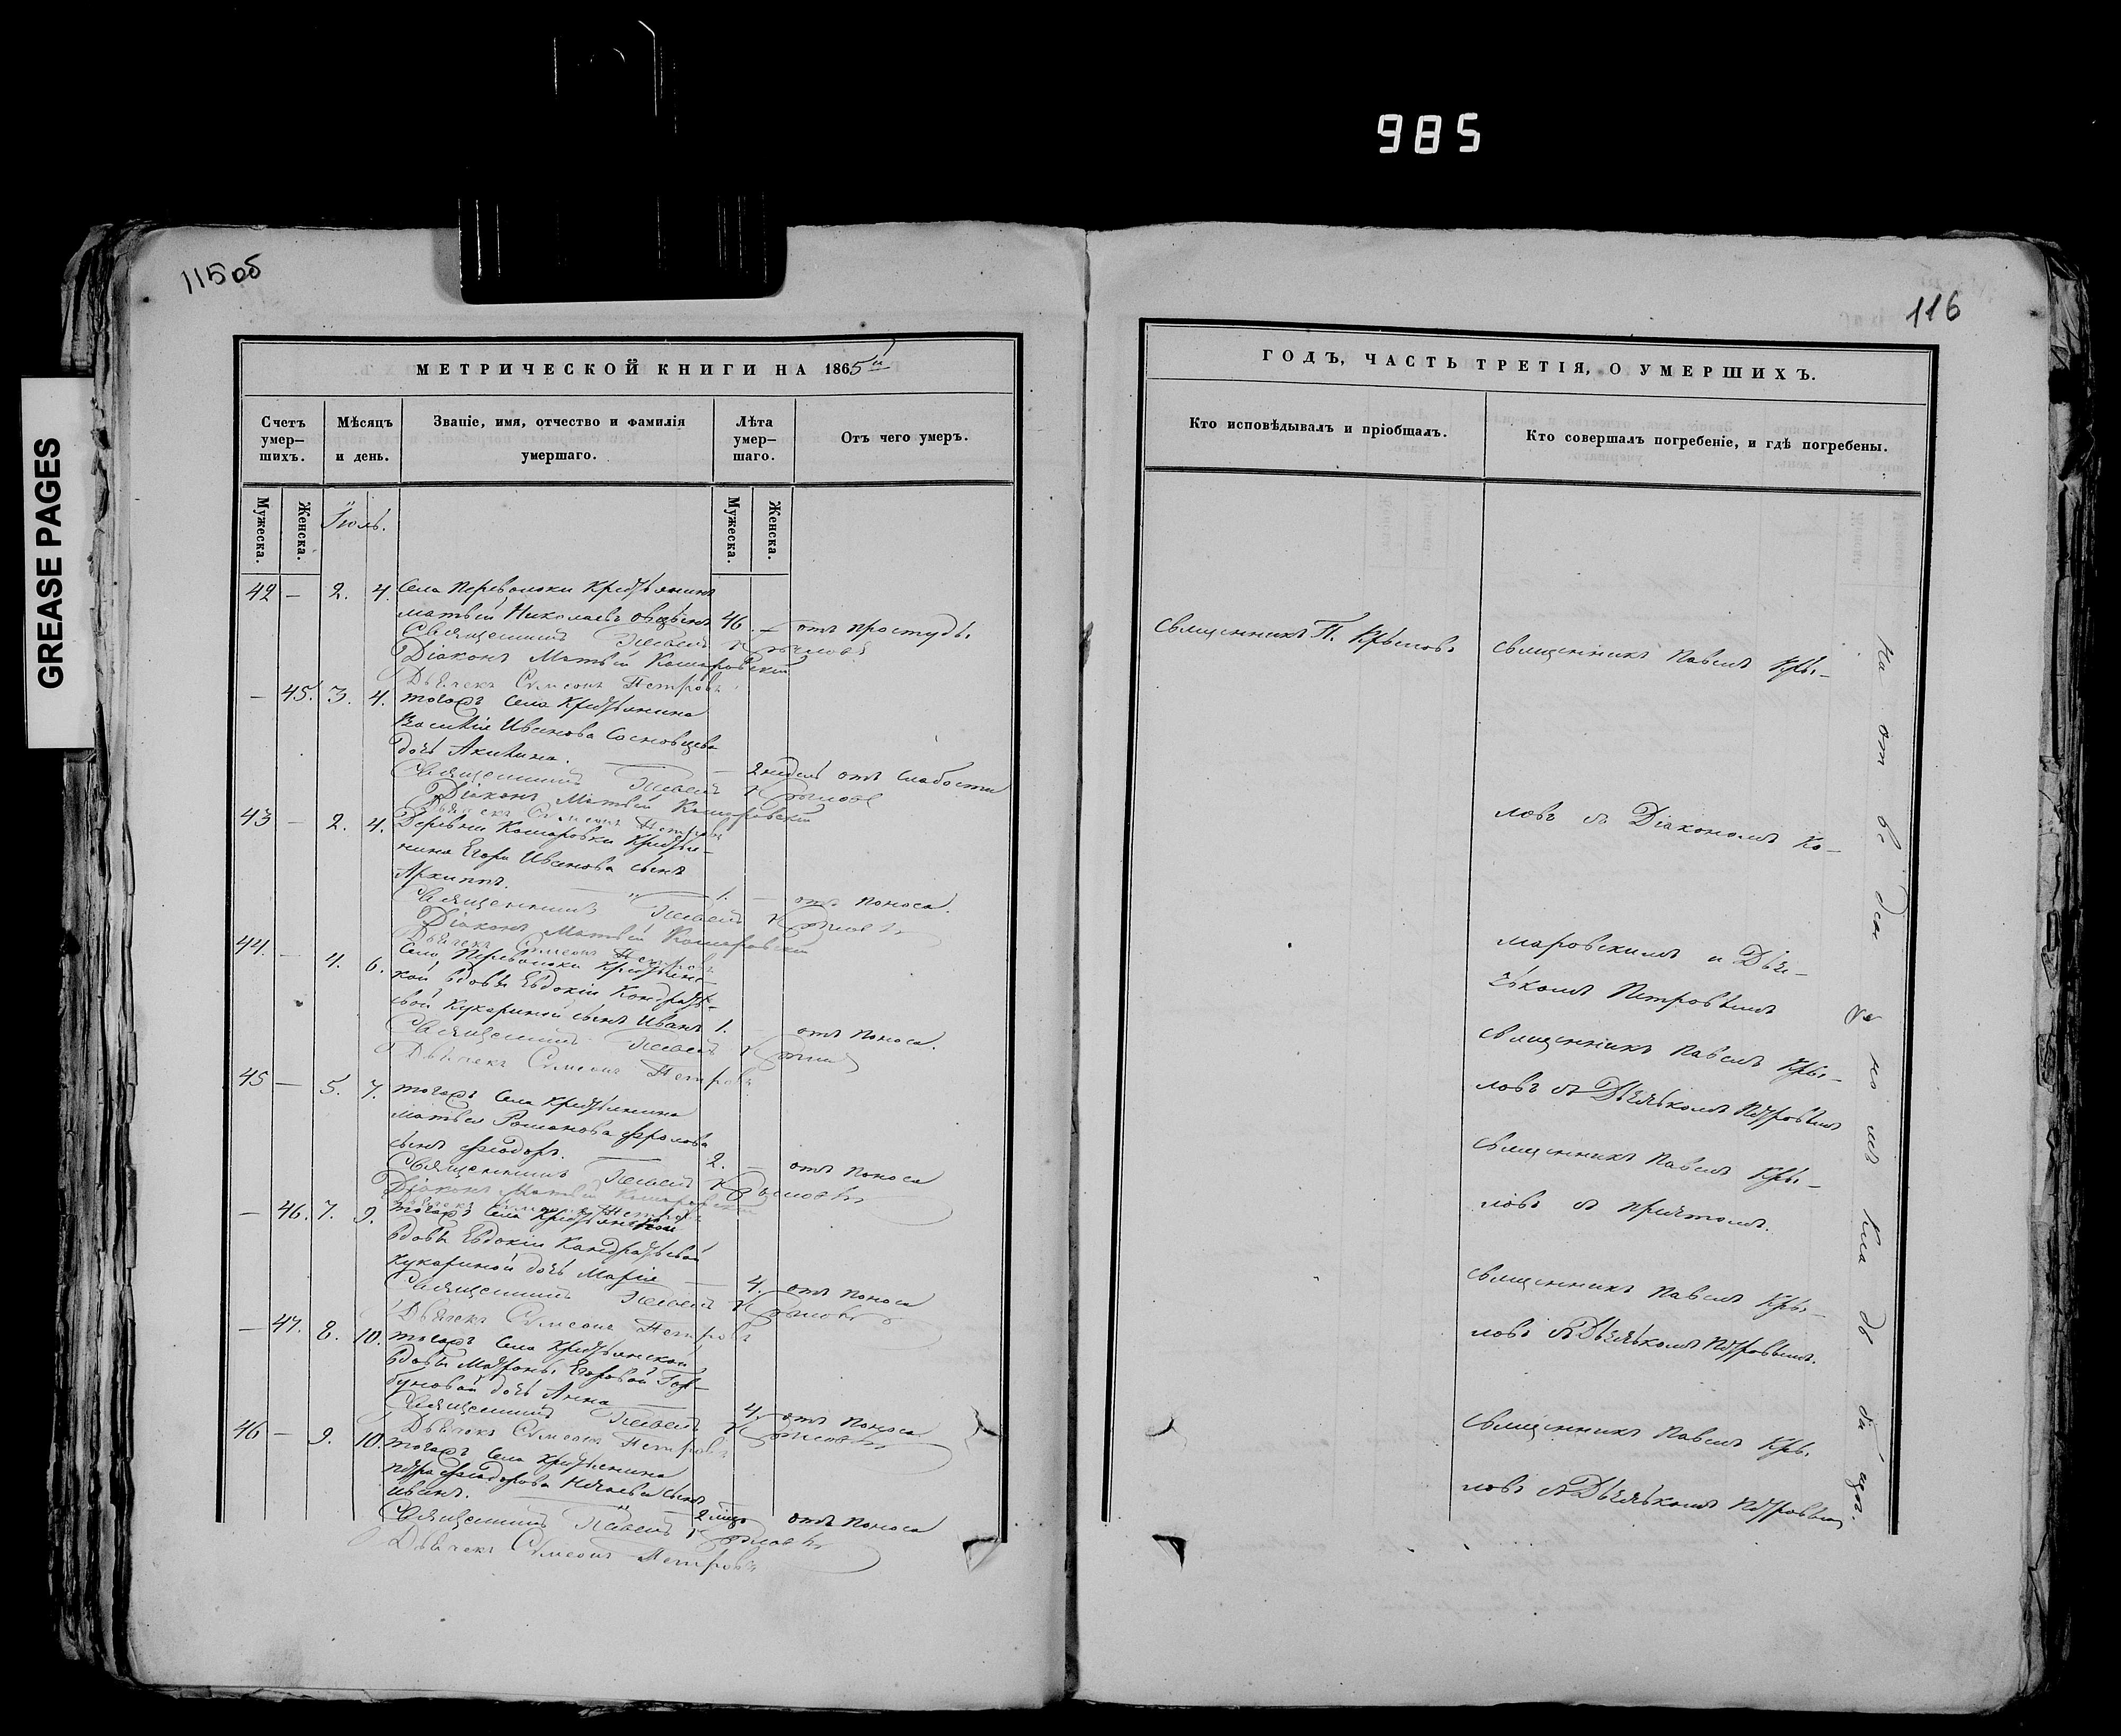 985
GREASE PAGES
115об
МЕТРИЧЕСКОЙ КНИГИ НА 1865й
Счетъ умер-шихъ.
Мѣсяцъ и день.
Званіе, имя, отчество и фамилія умершаго.
Лѣта умер-шаго.
Отъ чего умеръ.
Мужеска.
Женска.
Іюль.
Мужеска.
Женска.
42 – 2. 4. Села Переволоки Крестьянинъ
Матвѣй Николаевъ 46. – отъ простуды.
Священникъ Павелъ Крыловъ
Діаконъ Матвѣй Комаровскій
Дьячекъ Симеонъ Петровъ
– 45. 3. 4. тогожъ Села Крестьянина
Василія Иванова Сосновцева
дочь Акилина. – 2 недѣл отъ слабости
Священникъ Павелъ Крыловъ
Діаконъ Матвѣй Комаровскій
Дьячекъ Симеонъ Петровъ
43 – 2. 4. Деревни Комаровки Крестья-
нина Егора Иванова сынъ
Архиппъ. 1. – отъ поноса.
Священникъ Павелъ Крыловъ
Діаконъ Матвѣй Комаровскій
Дьячекъ Симеонъ Петровъ
44. – 4. 6. Села Переволоки Крестьянс-
кой вдовы Евдокіи Кондрать-
евой Кухариной сынъ Иванъ 1. – отъ поноса.
Священникъ Павелъ Крыловъ
Дьячекъ Симеонъ Петровъ
45 – 5. 7. тогожъ Села Крестьянина
Матвея Романова Фролова
сынъ Феодоръ. 2. – отъ поноса
Священникъ Павелъ Крыловъ
Діаконъ Матвѣй Комаровскій
Дьячекъ Симеонъ Петровъ
– 46. 7. 9. тогожъ Села Крестьянской
вдовы Евдокіи Кандратьевой
Кухариной дочь Марія – 4. отъ поноса
Священникъ Павелъ Крыловъ
Дьячекъ Симеонъ Петровъ
– 47. 8. 10. тогожъ Села Крестьянской
вдовы Матроны Егоровой Гор-
буновой дочь Анна 4. отъ поноса
Священникъ Павелъ Крыловъ
Дьячекъ Симеонъ Петровъ
46 – 9. 10. тогожъ Села Крестьянина
Петра Феодорова сынъ
Иванъ. 2 мѣс. отъ поноса
Священникъ Павелъ Крыловъ
Дьячекъ Симеонъ Петровъ
116
ГОДЪ, ЧАСТЬ ТРЕТІЯ, О УМЕРШИХЪ.
Кто исповѣдывалъ и пріобщалъ.
Кто совершалъ погребеніе, и гдѣ погребены.
Священникъ П. Крыловъ
Священникъ Павелъ Кры-
ловъ съ Діакономъ Ко-
маровскимъ и Дья-
чькомъ Петровымъ
Священникъ Павелъ Кры-
ловъ съ Дьячькомъ Петровым
Священникъ Павелъ Кры-
ловъ съ причтомъ.
Священникъ Павелъ Кры-
ловъ съ Дьячькомъ Петровымъ.
Священникъ Павелъ Кры-
ловъ съ Дьячькомъ Петровым
На отведенномъ кладбищѣ.